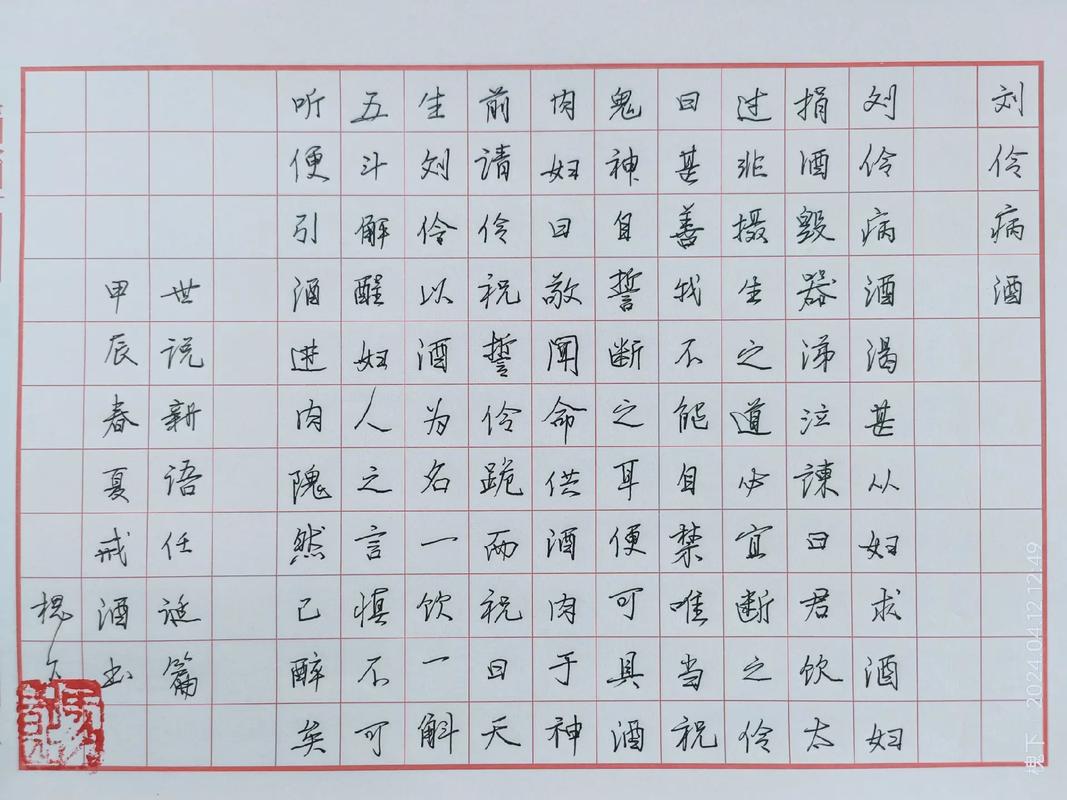 刘伶病酒
刘伶病酒渴甚从妇求酒妇
捐酒毁器涕泣谏曰君饮太
过非摄生之道必宜断之伶
曰甚善我不能自禁唯当祝
鬼神自誓断之耳便可具酒
肉妇曰敬闻命供酒肉于神
前请伶祝誓伶跪而祝曰天
生刘伶以酒为名一饮一斛
五斗解酲妇人之言慎不可
听便引酒进肉隗然已醉矣
世说新语任诞篇
甲辰春夏戒酒书
槐下
槐下 2024.04.12 12:49